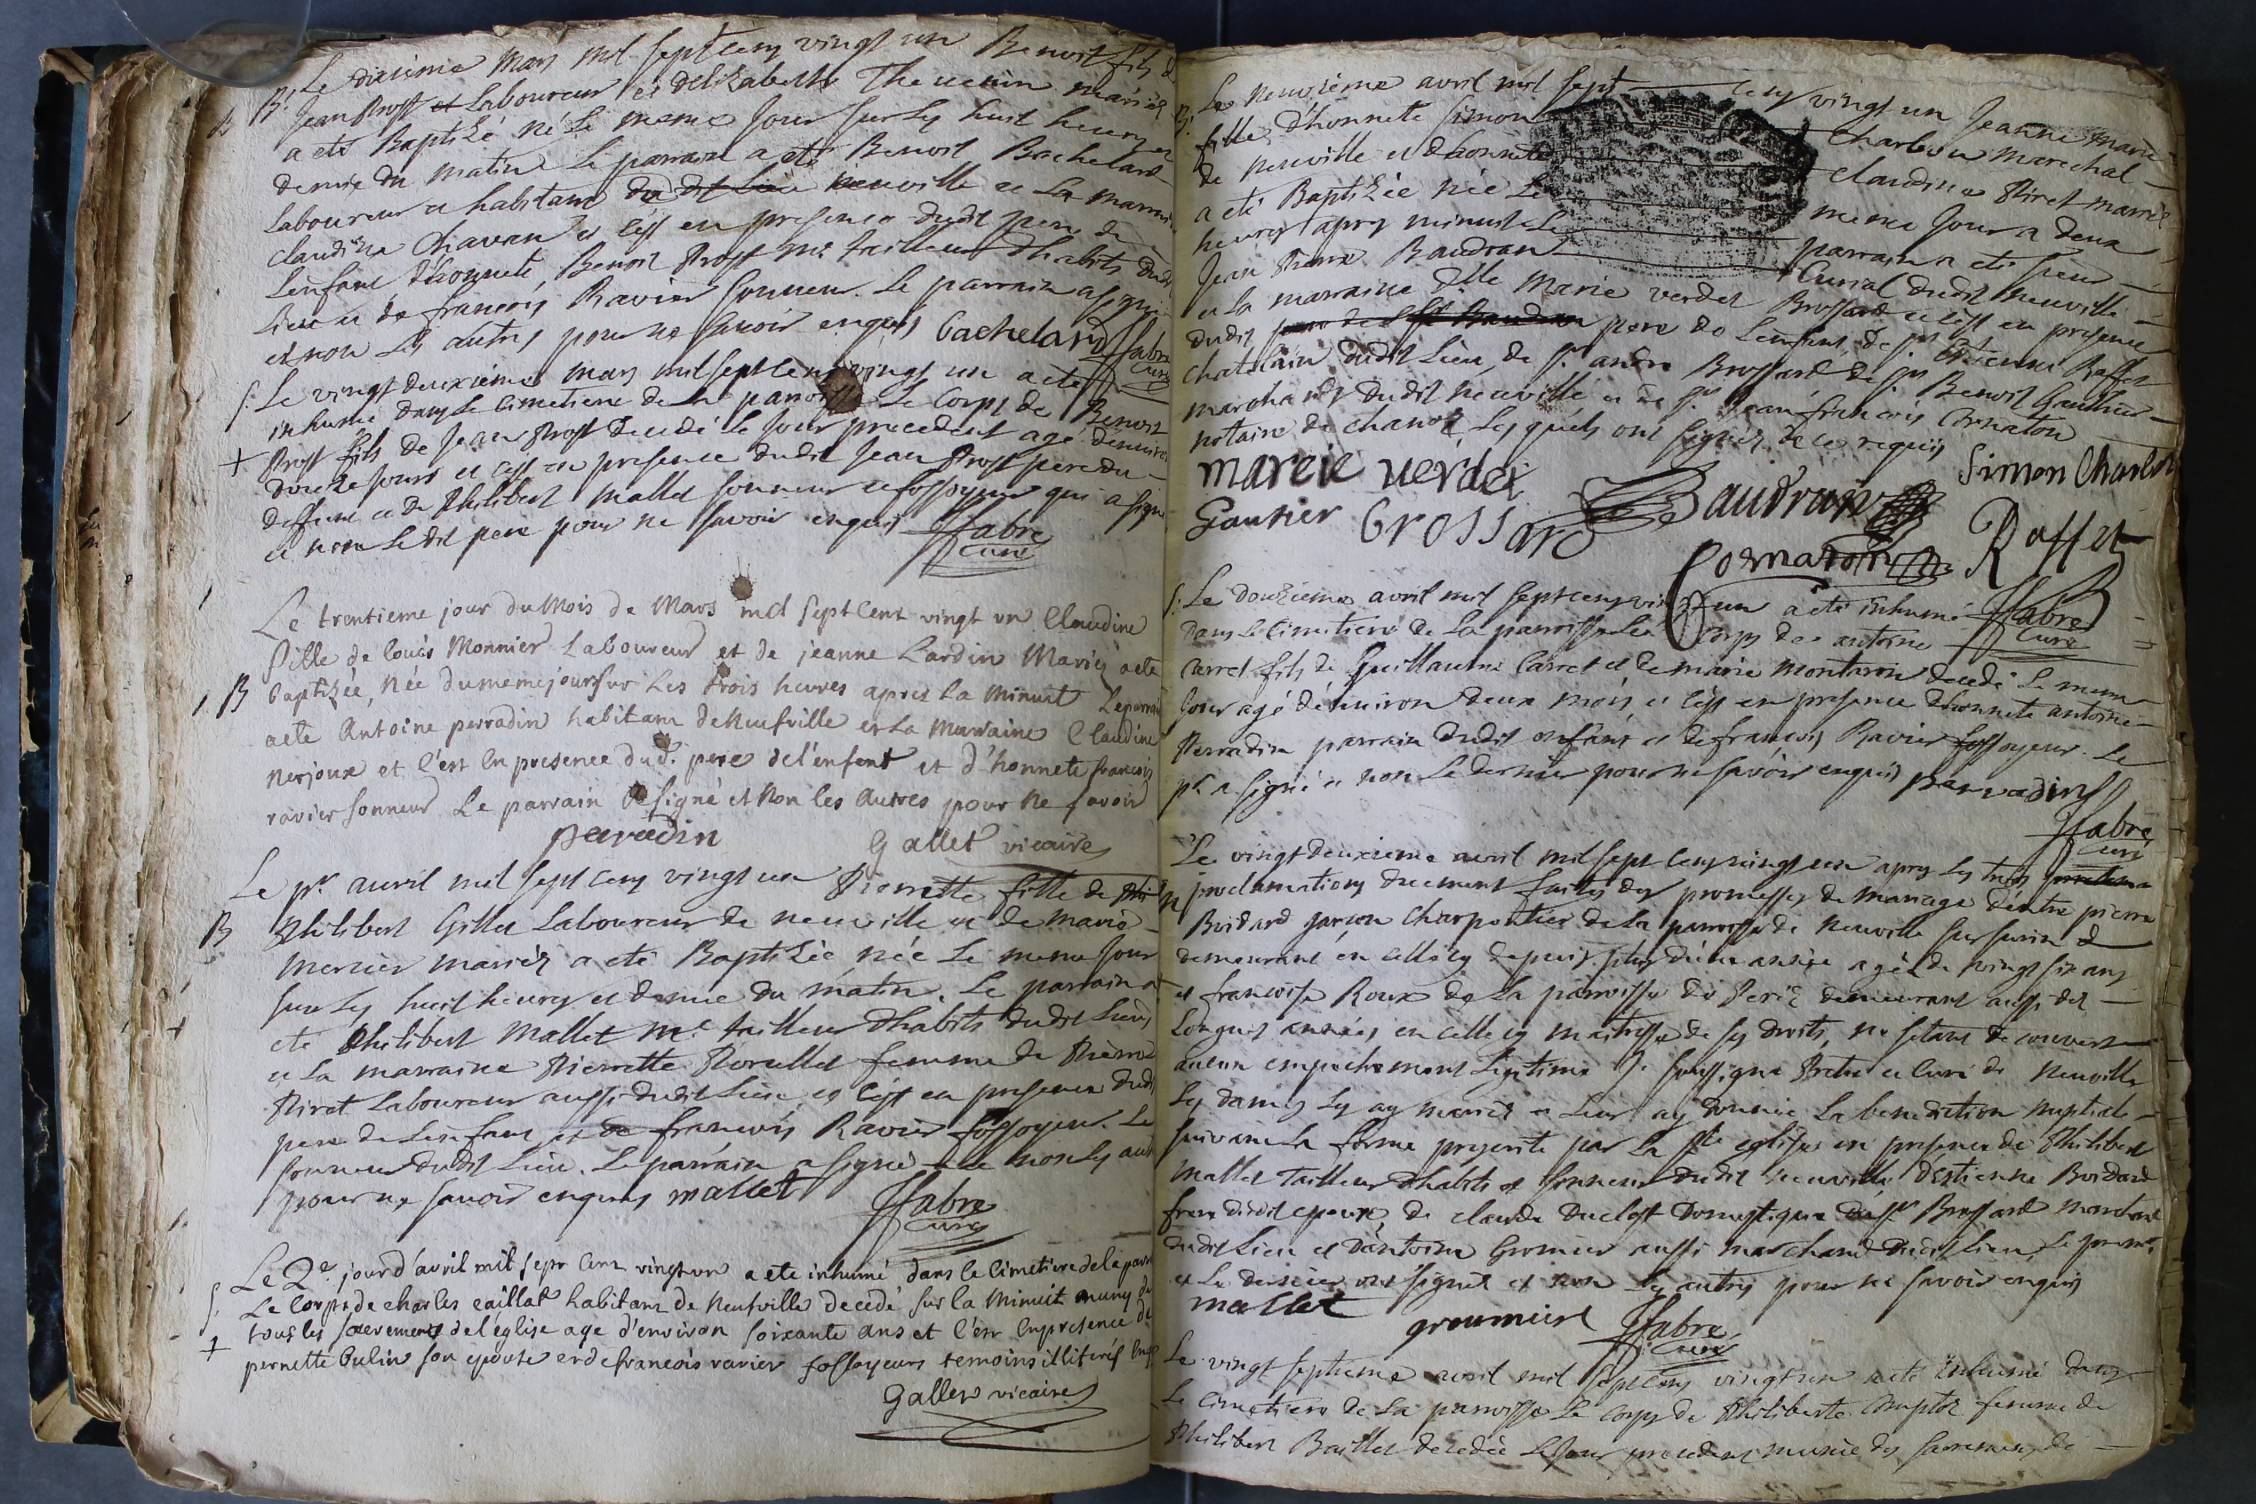 B. Le dixieme mars mil septcens vingt un Benoist fils de
Jean Prost et Laboureur et delizabeth Thevenin mariés
a eté Baptizé né le meme jour sur les huit heures et
demie du matin le parrain a eté Benoist Bachelard
Laboureur et habitant du dit lieu neuville et la marraine
claudine Chavan et c'est en presence dudit pere de
Lenfant d'honnete Benoit Prost me tailleur dhabits dudit
Lieu et de francois Ravier sonneur. Le parrain a signé
et non les autres pour ne savoir enquis bachelard
ffabre
curé
S. Le vingt deuxième mars mil sept cens vingt un a eté
inhumé dans le cimetiere de la paroisse Le Corps de Benoist
Prost fils de Jean Prost decedé le jour precedent agé denviron
douze jours et c'est en presence dudit Jean Prost pere du
deffunt et de Philibert mallet sonneur et fossoyeur qui a signé
et non ledit pere pour ne savoir enquis ffabre
curé
Le trentieme jour du Mois de Mars mil sept Cent vingt un Claudine
fille de Louis Monnier Laboureur et de jeanne Lardin Mariés a ete
B baptizée, Née du meme jour sur les trois heures apres la Minuit Le parrain
a ete Antoine perradin habitant de Neufville et la Marraine Claudine
nerjoux et c'est en presence dud. pere de l'enfent et d'honnete francois
ravier sonneur Le parrain a signé et non les autres pour ne savoir
peradin Gallet vicaire
Le pr avril mil sept cens vingt un Pierrette fille de
B Philibert Gillet Laboureur de neuville et de marie
mercier mariés a eté Baptizée née le meme jour
sur les huit heures et demie du matin. Le parrain a
eté Philibert Mallet me tailleur dhabits dudit lieu
et la marraine Pierrette femme de Pierre
Piret Laboureur aussi dudit Lieu, et c'est en presence dudit
pere de Lenfant et de francois Ravier fossoyeur. Le
sonneur dudit Lieu. Le parrain a signé et non les aut
pour ne savoir enquis mallet ffabre
curé
Le 2e jour d'avril mil sept cent vingt un a ete inhumé dans le Cimetiere de la parr
S. Le Corps de charles caillat habitant de Neufville decedé sur la Minuit muny de
tous les sacrements de l'église age d'environ soixante ans et c'est en presence de
pernette bulin son epouse et de francois ravier fossoyeurs temoins illiterés enq
Gallet vicaire
B. Le neuvième avril mil sept cens vingt un Jeanne marie
fille d'honnete Simon Charbon marechal
de neuville et d'honnete claudine Piret mariés
a eté Baptizée née le meme jour a deux
heures apres minuit Le parrain a eté sieur
Jean Pierre Baudran Curial dudit neuville
et la marraine dlle Marie verdet Brossard et c'est en presence
dudit pere de Lenfant, de sr Etienne Raffet
chatelain dudit Lieu, de sr andré Brossard de sr Benoit Gauthier
marchands dudit neuville et de sr Jean francois Cornaton
notaire de chanoz Lesquels ont signés de ce requis
mareie verdet Simon Charbon
Gautier brossard Baudran
Cornaton Raffet
S. Le douzieme avril mil sept cens vingt un a eté inhumé ffabre
dans le cimetiere de la paroisse Le corps de antoine curé
Carret fils de Guillaume Carret et de marie montaron decedé le meme
jour agé d'environ deux mois et c'est en presence d'honnete antoine
Perradin parrain dudit enfant et de francois Ravier fossoyeur. Le
pr a signé et non Le dernier pour ne savoir enquis parradin
ffabre
curé
Le vingt deuxieme avril mil sept cens vingt un apres les trois
proclamations duement faites des promesses de mariage dentre pierre
Boidard garcon charpentier de la paroisse de neuville sur surin et
demeurant en celle cy depuis plus d'une année agé de vingt six ans
et francoise Roux de la paroisse de demeurant aussi dès
longues années en celle cy maitresse de ses droits, ne setant decouvert
aucun empechement legitime Je soussigné Pretre et Curé de Neuville
Les Dames les ay mariés et leur ay donnée La benediction nuptiale
suivant la forme prescrite par la Ste eglise en presence de Philibert
mallet Tailleur dhabits et sonneur dudit neuville d'estienne Boidard
frere dudit epoux, de claude duclost domestique de sr Brossard marchand
dudit Lieu et d'antoine Gromier aussi marchand dudit Lieu, Le premier
et le dernier ont signés et non les autres pour ne savoir enquis
mallet groumier ffabre
curé
Le vingt septieme avril mil sept cens vingt un a eté inhumé dans
Le cimetiere de la paroisse Le corps de Philiberte femme de
Philibert Baillet decedée Le jour precedent munie des sacremens de